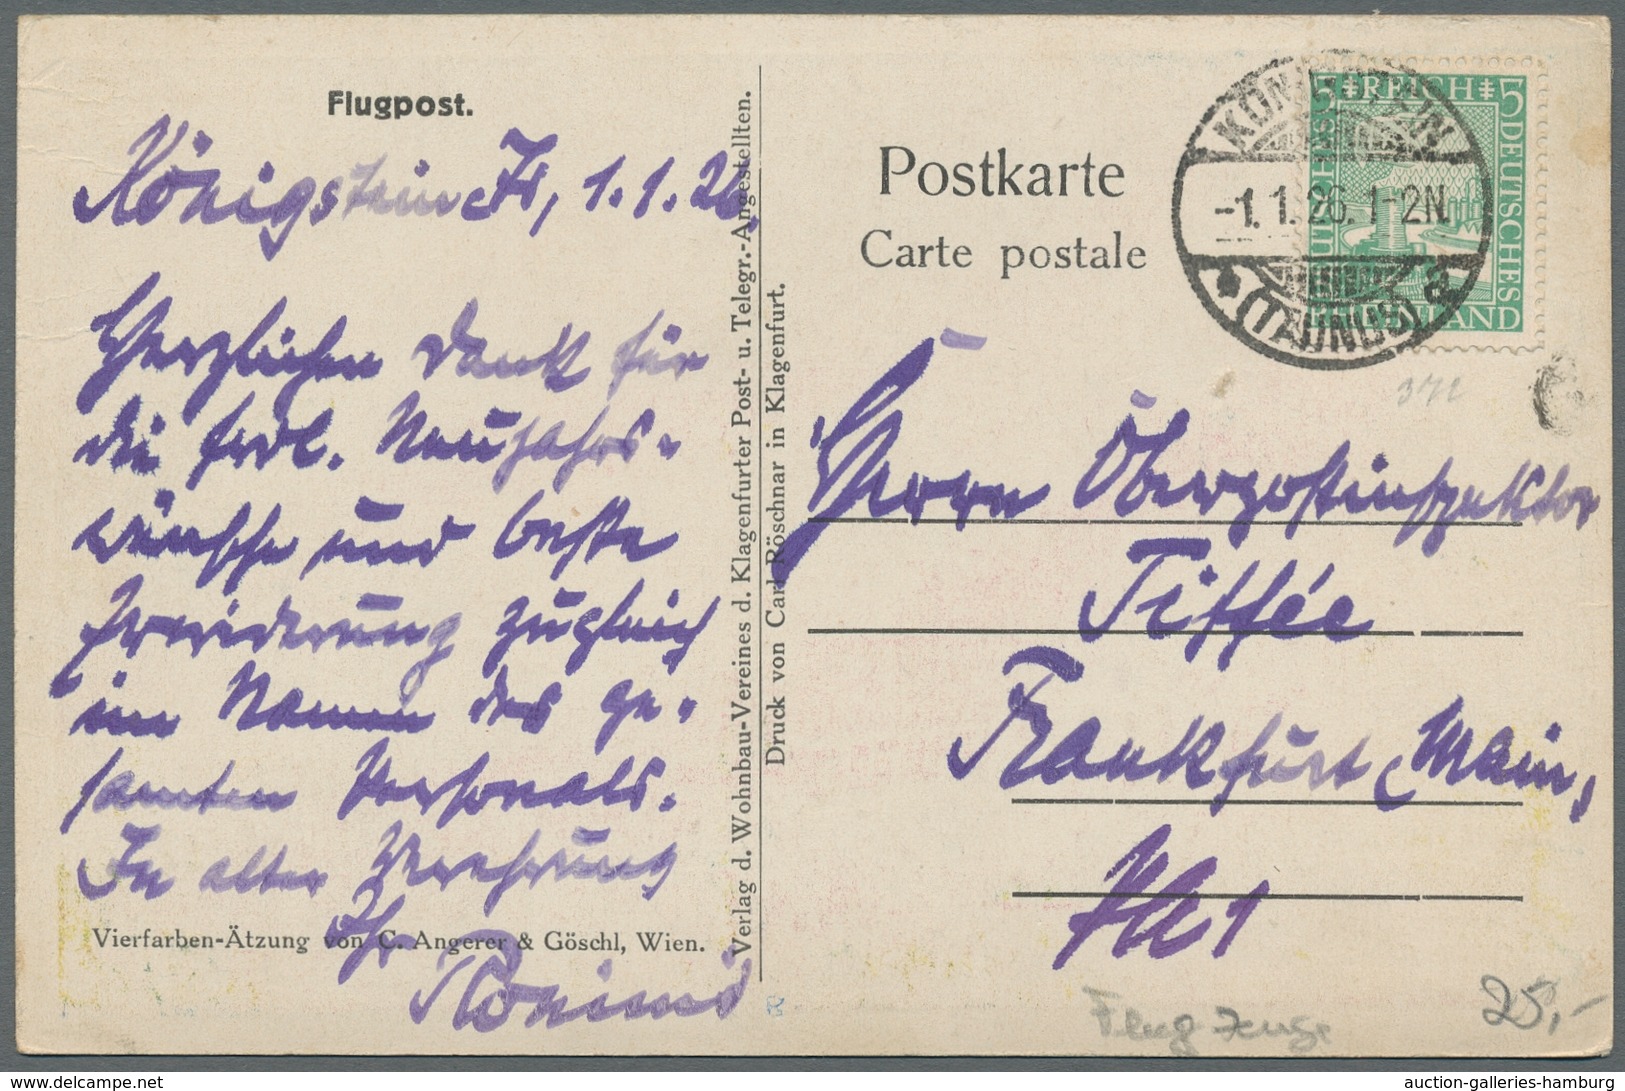 Flugpost.
Königstein Ts, 1.1.26.
Herzlichen Dank für
die frdl. Neujahrs-
wünsche und beste
Erwiderung zugleich
im Namen des ge-
samten Personals.
In alter Verehrung
Ihr
Vierfarben-Ätzung von C. Angerer & Göschl, Wien.
Verlag d. Wohnbau-Vereines d. Klagenfurter Post- u. Telegr.-Angestellten.
Druck von Carl Röschnar in Klagenfurt.
Postkarte
Carte postale
KÖNIGSTEIN
-1.1.26.1-2N.
* (TAUNUS) a
5 REICH 5
DEUTSCHES
372
Herrn Oberpostinspektor
Tiffée
Frankfurt (Main)
PA 1
Flugzeuge
25,-
www.delcampe.net
auction-galleries-hamburg